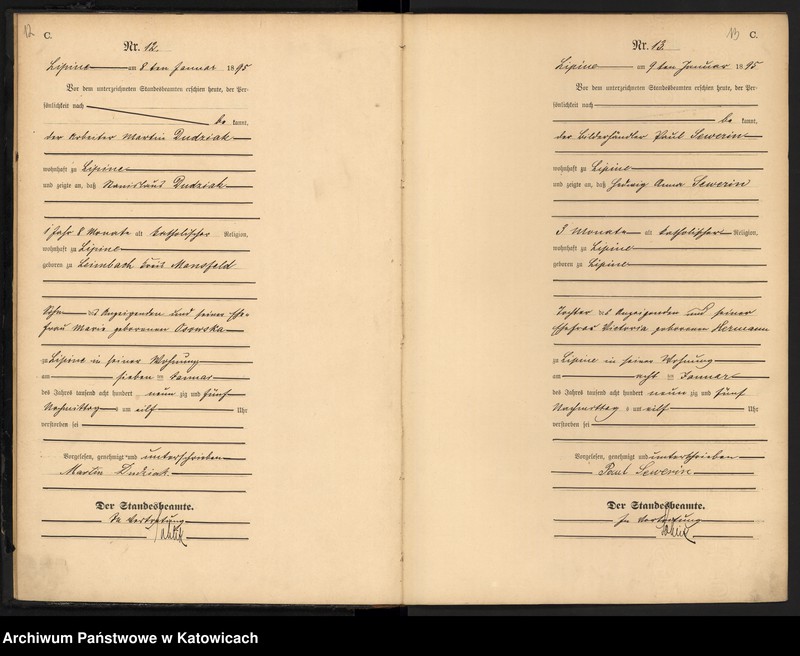 12
C.
Nr. 12.
Lipine am 8ten Januar 1895
Vor dem unterzeichneten Standesbeamten erschien heute, der Per-
sönlichkeit nach
be kannt,
der Arbeiter Martin Dudziak
wohnhaft zu Lipine
und zeigte an, daß Stanislaus Dudziak
1 Jahr 8 Monate alt katholischer Religion,
wohnhaft zu Lipine
geboren zu Leimbach Kreis Mansfeld
Sohn des Anzeigenden und seiner Ehe-
frau Marie geborenen Osowska
zu Lipine in seiner Wohnung
am sieben ten Januar
des Jahres tausend acht hundert neun zig und fünf
Nachmittag um eilf Uhr
verstorben sei
Vorgelesen, genehmigt und unterschrieben
Martin Dudziak
Der Standesbeamte.
In Vertretung
13
C.
Nr. 13.
Lipine am 9ten Januar 1895
Vor dem unterzeichneten Standesbeamten erschien heute, der Per-
sönlichkeit nach
be kannt,
der Bilderhändler Paul Sewerin
wohnhaft zu Lipine
und zeigte an, daß Hedwig Anna Sewerin
3 Monate alt katholischer Religion,
wohnhaft zu Lipine
geboren zu Lipine
Tochter des Anzeigenden und seiner
Ehefrau Victoria geborenen Hermann
zu Lipine in seiner Wohnung
am acht ten Januar
des Jahres tausend acht hundert neun zig und fünf
Nachmittag um eilf Uhr
verstorben sei
Vorgelesen, genehmigt und unterschrieben
Paul Sewerin
Der Standesbeamte.
In Vertretung
Archiwum Państwowe w Katowicach